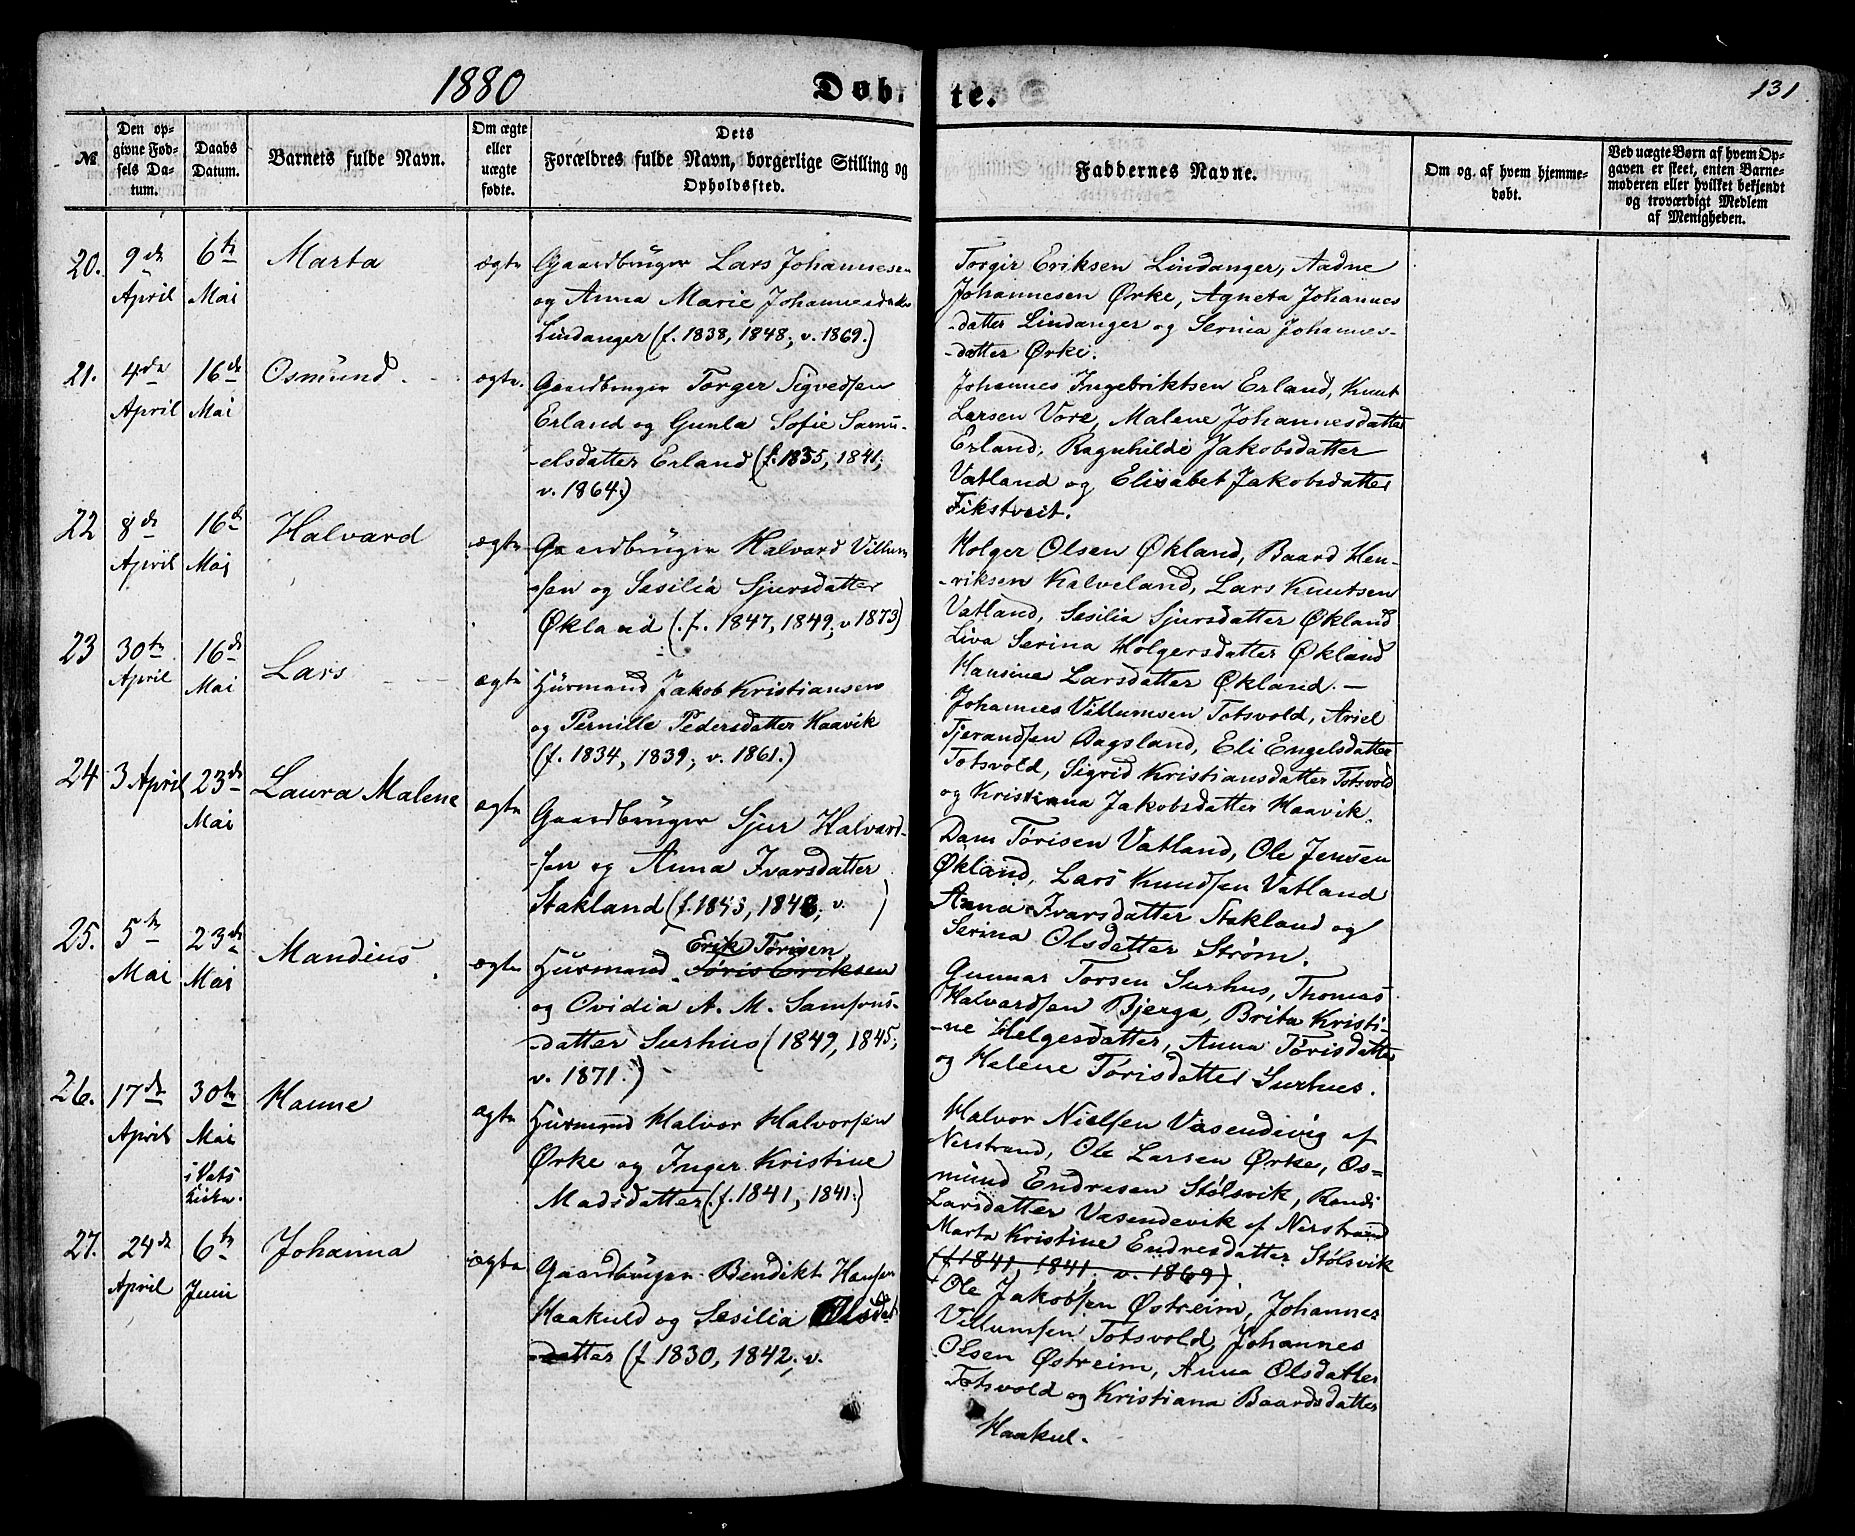 1880
Døbte.
131
№
Den opgivne Fødsels Datum.
Daabs Datum.
Barnets fulde Navn.
Om ægte eller uægte fødte.
Dets Forældres fulde Navn, borgerlige Stilling og Opholdssted.
Faddernes Navne.
Om og af hvem hjemmedøbt.
Ved uægte Børn af hvem Opgaven er skeet, enten Barnemoderen eller hvilket bekjendt og troværdigt Medlem af Menigheden.
20.
9de April
6te Mai
Marta
ægte
Gaardbruger Lars Johannesen
og Anna Marie Johannesdatter
Lindanger (f. 1838, 1848, v. 1869.)
Torgir Eriksen Lindanger, Aadne
Johannesen Ørke, Agneta Johannes
-datter Lindanger og Serina Johannes-
-datter Ørke.
21.
4de April
16de Mai
Osmund
ægte.
Gaardbruger Torger Sigvedsen
Erland og Gunla Sofie Samu-
-elsdatter Erland (f. 1835, 1841,
v. 1864.)
Johannes Ingebriktsen Erland, Knut
Larsen Vore, Malene Johannesdatter
Erland, Ragnhilde Jakobsdatter
Vatland og Elisabet Jakobsdatter
Fikstveit.
22
8de April
16de Mai
Halvard
ægte
Gaardbruger Halvard Villum
-sen og Sesilia Sjursdatter
Økland (f. 1847, 1849, v 1873)
Holger Olsen Økland, Baard Hen-
-riksen Kalveland, Lars Knutsen
Vatland, Sesilia Sjursdatter Økland
Liva Serina Holgersdatter Økland
Hansine Larsdatter Økland. —
23
30te April
16de Mai
Lars
ægte
Husmand Jakob Kristiansen
og Pernille Pedersdatter Haavik
(f. 1834, 1839, v. 1861.)
Johannes Villumsen Totsvold, Ariel
Tjerandsen Dagsland, Eli Engelsdatter
Totsvold, Sigrid Kristiansdatter Totsvold
og Kristiana Jakobsdatter Haavik.
24
3 April
23de Mai
Laura Malene
ægte
Gaardbruger Sjur Halvard-
-sen og Anna Ivarsdatter
Stakland (f. 1843, 1848, v. )
Dam Tørisen Vatland, Ole Jensen
Økland, Lars Knudsen Vatland
Anna Ivarsdatter Stakland og
Serina Olsdatter Strøm.
25.
5te Mai
23de Mai
Mandius
ægte
Erik Tørisen,
Husmand Tøris Eriksen
og Ovidia A. M. Samsons-
-datter Surhus (1849, 1845,
v. 1871.)
Gunnar Torsen Surhus, Thomas
Halvardsen Bjerga, Brita Kristi-
-ne Helgesdatter, Anna Tørisdatter
og Helene Tørisdatter Surhus.
26.
17de April
30te Mai
i Vats
Kirke.
Hanne
ægte
Husmand Halvor Halvorsen
Ørke og Inger Kristine
Madsdatter (f. 1841, 1841.)
Halvor Nielsen Vasendvig af
Nerstrand, Ole Larsen Ørke, Os-
mund Endresen Stølsvik, Randi
Larsdatter Vasendevik af Nerstrand
Marta Kristine Endresdatter Stølsvik
(f. 1841, 1841, v. 1869).
27.
24de April
6te Juni
Johanna
ægte
Gaardbruger Bendikt Hansen
Haakuld og Sesilia Olsdat
-datter (f. 1830, 1842, v.
Ole Jakobsen Østreim, Johannes
Villumsen Totsvold, Johannes
Olsen Østreim, Anna Olsdatter
Totsvold og Kristiana Baardsdatter
Haakul.